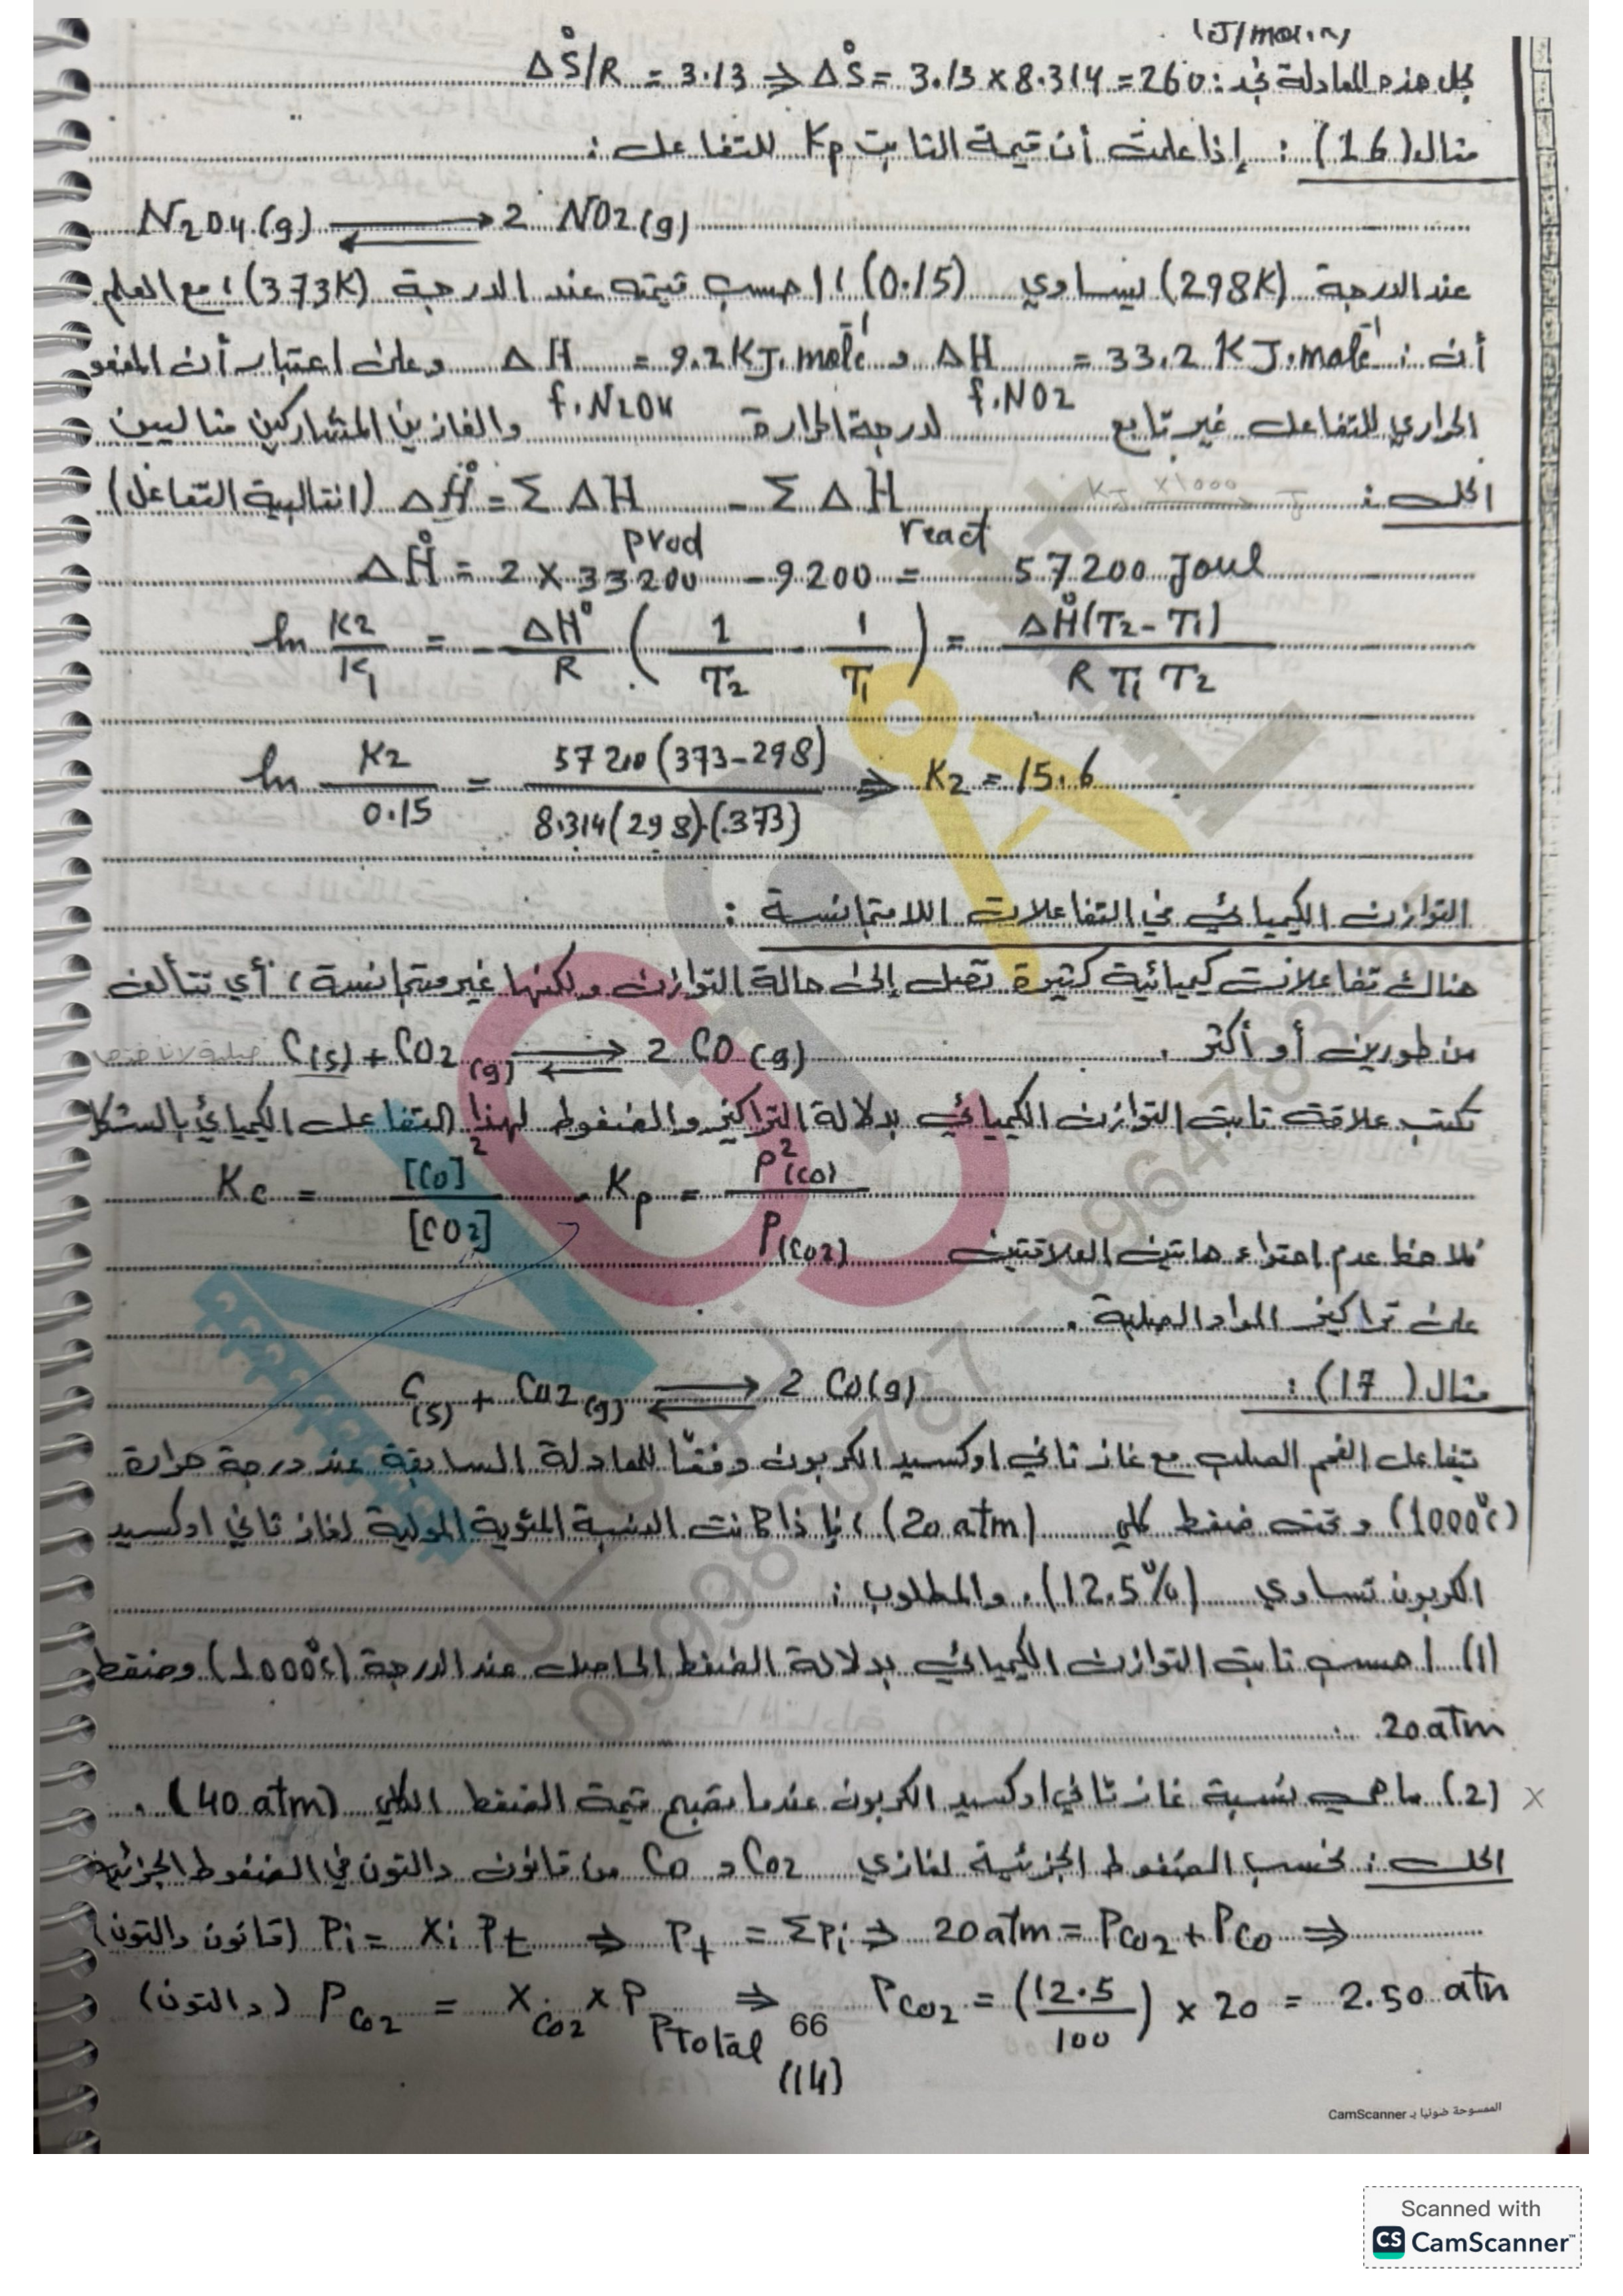 (J/mol.K)
بحل هذه المعادلة نجد: ΔS°/R = 3.13 ⇒ ΔS° = 3.13 × 8.314 = 260
مثال (16) : إذا علمت أن قيمة الثابت Kp للتفاعل :
N2O4(g) ⇌ 2 NO2(g)
عند الدرجة (298K) يساوي (0.15) ، احسب قيمته عند الدرجة (373K) ، مع العلم
أن : ΔH f.NO2 = 33.2 KJ.mole⁻¹ و ΔH f.N2O4 = 9.2 KJ.mole⁻¹ وعلى اعتبار أن المفعو
الحراري للتفاعل غير تابع لدرجة الحرارة والغازين المتشاركين مثاليين
الحل : KJ ×1000 → J ΔH° = Σ ΔH prod - Σ ΔH react (انتالبية التفاعل)
ΔH° = 2 × 33200 - 9200 = 57200 Joul
ln K2/K1 = - ΔH°/R ( 1/T2 - 1/T1 ) = ΔH°(T2 - T1) / R T1 T2
ln K2/0.15 = 57200 (373-298) / 8.314(298).(373) ⇒ K2 = 15.6
التوازن الكيميائي في التفاعلات اللامتجانسة :
هناك تفاعلات كيميائية كثيرة تصل إلى حالة التوازن ولكنها غير متجانسة ، أي تتألف
من طورين أو أكثر . C(s) + CO2(g) ⇌ 2 CO(g)
تكتب علاقة ثابت التوازن الكيميائي بدلالة التراكيز والضغوط لهذا التفاعل الكيميائي بالشكل
Kc = [CO]²/[CO2] - Kp = P²(CO)/P(CO2)
نلاحظ عدم احتواء هاتين العلاقتين
على تراكيز المواد الصلبة .
مثال (17) : C(s) + CO2(g) ⇌ 2 CO(g)
يتفاعل الفحم الصلب مع غاز ثاني اوكسيد الكربون وفقاً للمعادلة السابقة عند درجة حرارة
(1000°C) وتحت ضغط كلي (20 atm) ، فإذا كانت النسبة المئوية المولية لغاز ثاني اوكسيد
الكربون تساوي (12.5%) . والمطلوب :
(1) احسب ثابت التوازن الكيميائي بدلالة الضغط الحاصل عند الدرجة (1000°C) وضغط
20 atm .
(2) ما هي نسبة غاز ثاني اوكسيد الكربون عندما تصبح قيمة الضغط الكلي (40 atm) .
الحل : نحسب الضغوط الجزئية لغازي CO2 و CO من قانون دالتون في الضغوط الجزئية
(قانون دالتون) Pi = Xi Pt ⇒ Pt = ΣPi ⇒ 20 atm = PCO2 + PCO ⇒
(دالتون) PCO2 = XCO2 × P Ptotal ⇒ PCO2 = (12.5/100) × 20 = 2.50 atm
66
(14)
الممسوحة ضوئيا بـ CamScanner
Scanned with
CS CamScanner™